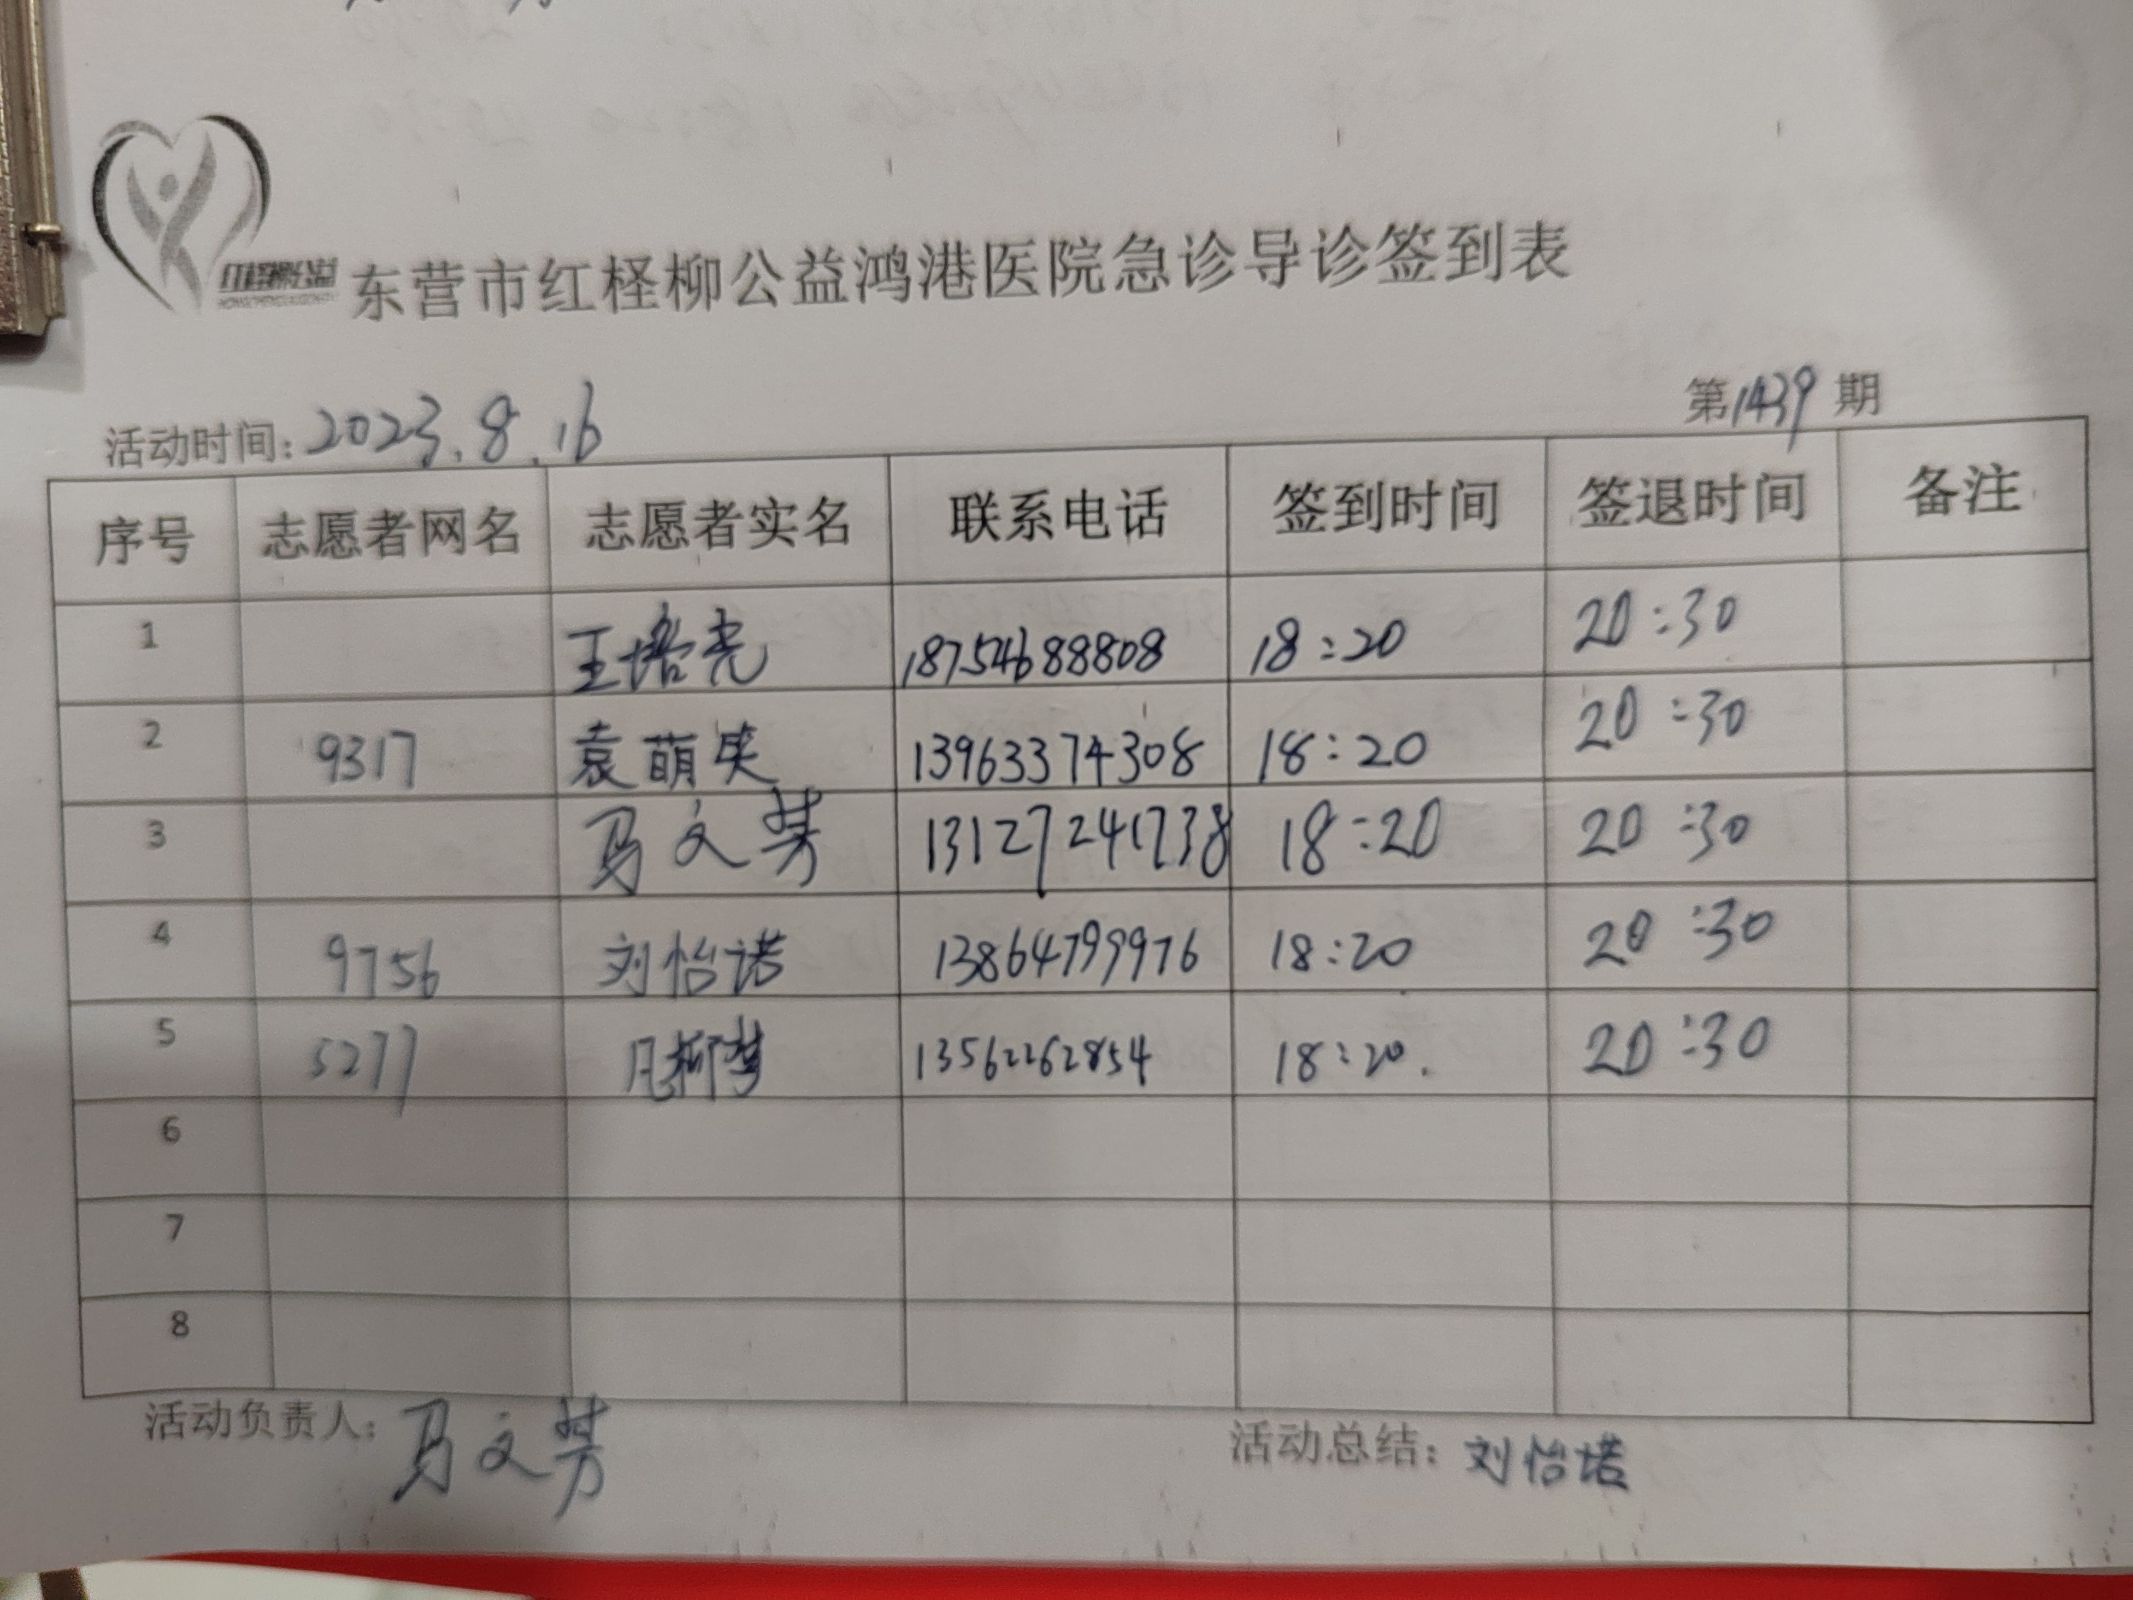 红柽柳公益
东营市红柽柳公益鸿港医院急诊导诊签到表
活动时间:2023.8.16
第1439期
序号 志愿者网名 志愿者实名 联系电话 签到时间 签退时间 备注
1 王培尧 18754688808 18:20 20:30
2 9317 袁萌 13963374308 18:20 20:30
3 马文芳 13127241738 18:20 20:30
4 9756 刘怡诺 13864799976 18:20 20:30
5 5277 柳梦 13562262854 18:20. 20:30
6
7
8
活动负责人:马文芳
活动总结:刘怡诺